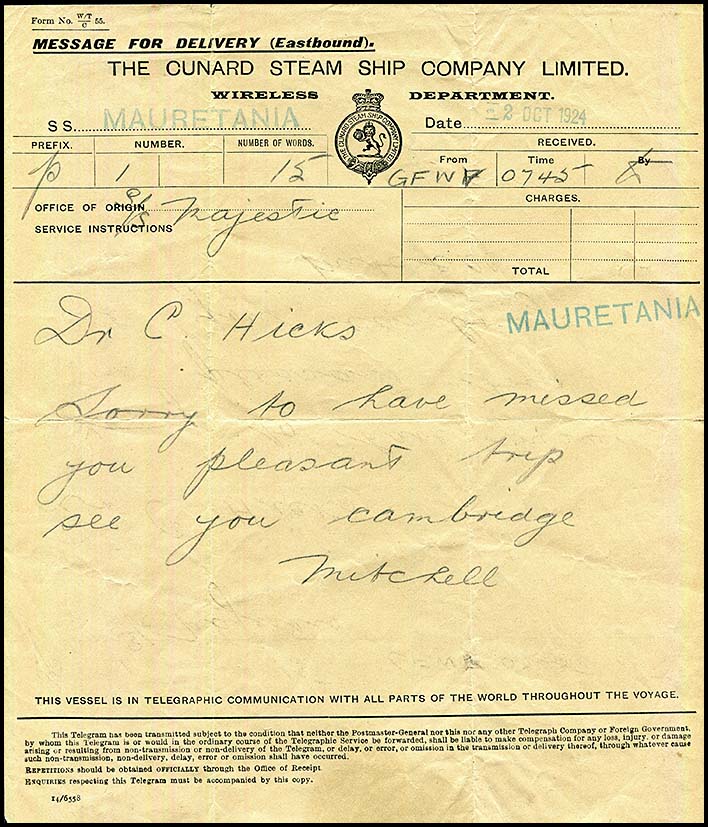 Form No. W/T/C 55.
MESSAGE FOR DELIVERY (Eastbound).
THE CUNARD STEAM SHIP COMPANY LIMITED.
WIRELESS DEPARTMENT.
THE CUNARD STEAM SHIP COMPANY LIMITED
SS. MAURETANIA Date -2 OCT 1924
PREFIX. NUMBER. NUMBER OF WORDS. RECEIVED.
From Time By
p 1 15 GFWV 0745
OFFICE OF ORIGIN s/s Majestic CHARGES.
SERVICE INSTRUCTIONS
TOTAL
MAURETANIA
Dr C. Hicks
Sorry to have missed
you pleasant trip
see you cambridge
Mitchell
THIS VESSEL IS IN TELEGRAPHIC COMMUNICATION WITH ALL PARTS OF THE WORLD THROUGHOUT THE VOYAGE.
This Telegram has been transmitted subject to the condition that neither the Postmaster-General nor this nor any other Telegraph Company or Foreign Government,
by whom this Telegram is or would in the ordinary course of the Telegraphic Service be forwarded, shall be liable to make compensation for any loss, injury, or damage
arising or resulting from non-transmission or non-delivery of the Telegram, or delay, or error, or omission in the transmission or delivery thereof, through whatever cause
such non-transmission, non-delivery, delay, error or omission shall have occurred.
REPETITIONS should be obtained OFFICIALLY through the Office of Receipt.
ENQUIRIES respecting this Telegram must be accompanied by this copy.
14/6558